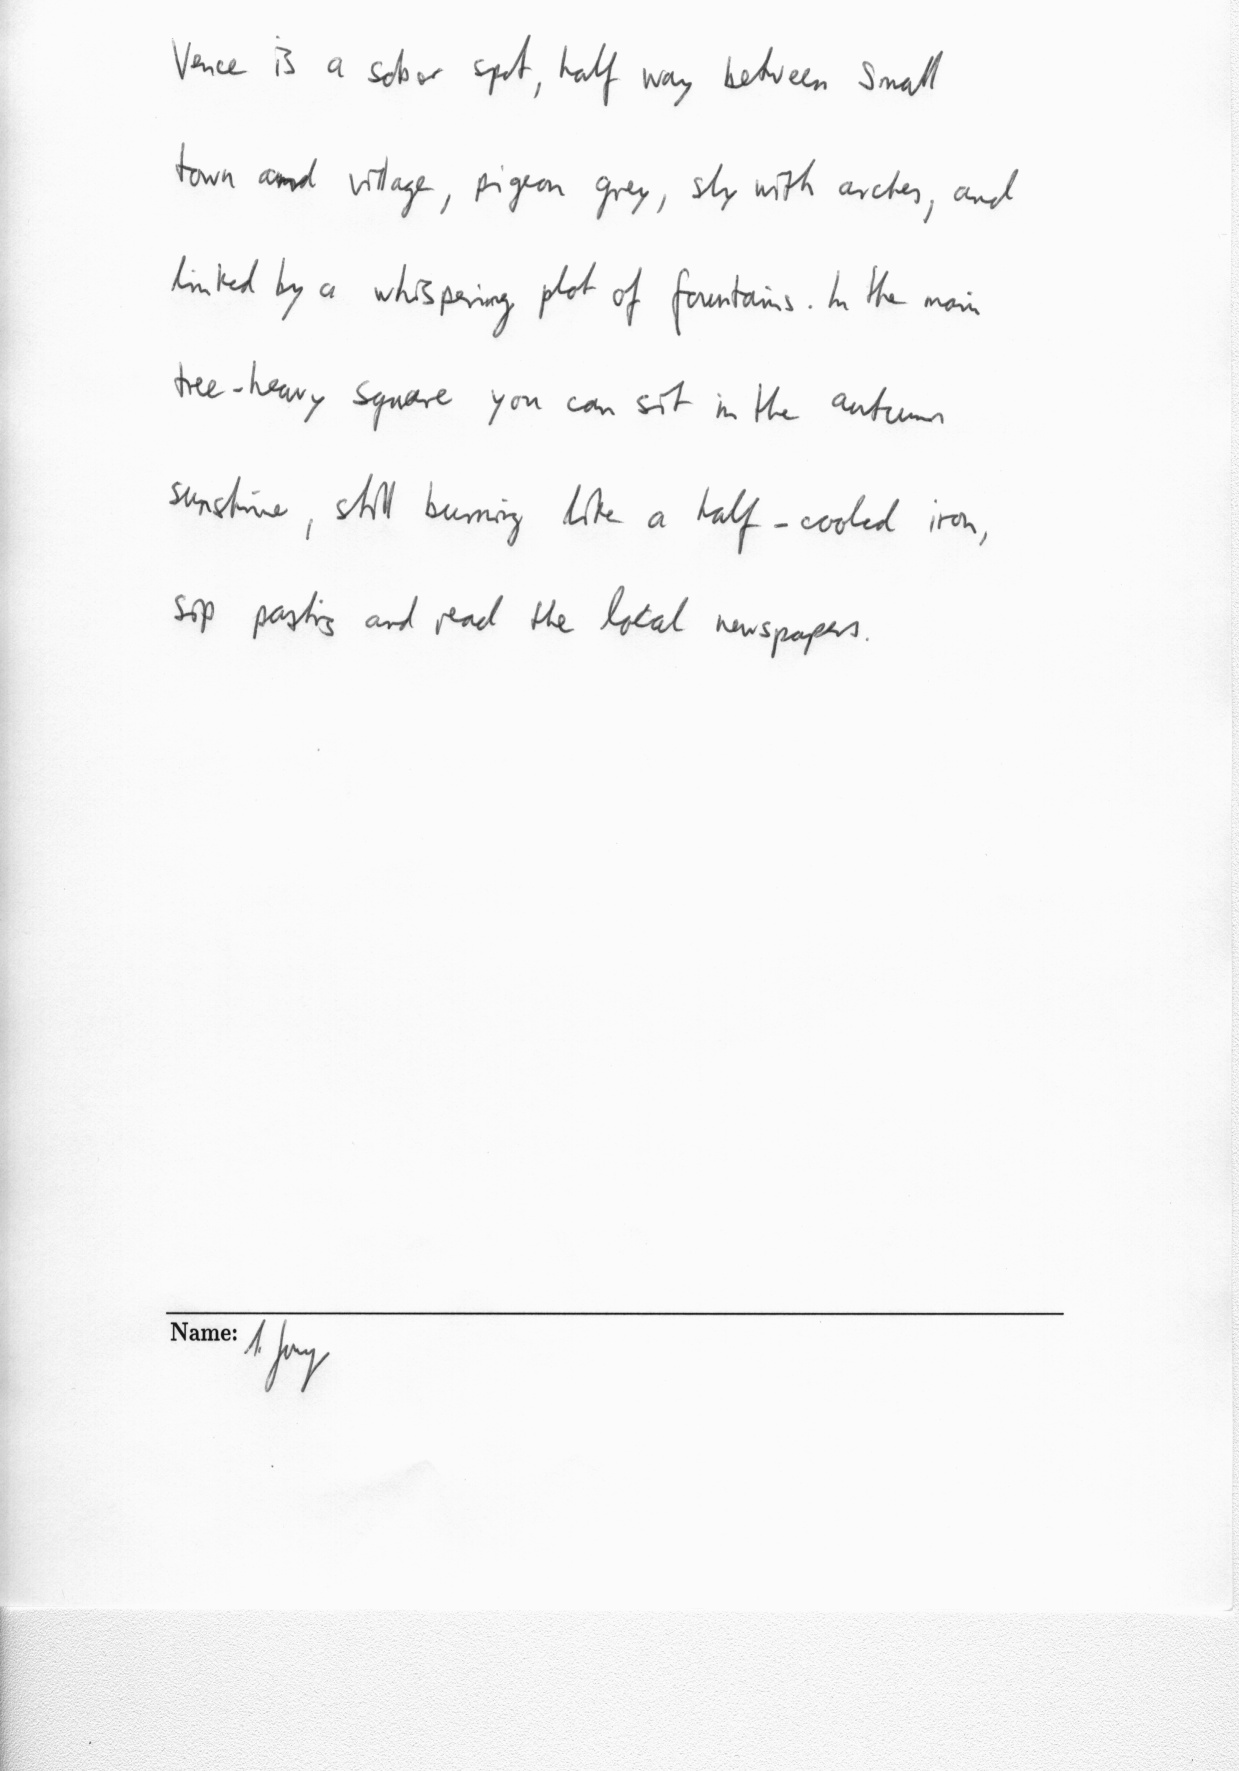 Vence is a sober spot, half way between small
town and village, pigeon grey, sly with arches, and
linked by a whispering plot of fountains. In the main
tree-heavy square you can sit in the autumn
sunshine, still burning like a half-cooled iron,
sip pastis and read the local newspapers.
Name: